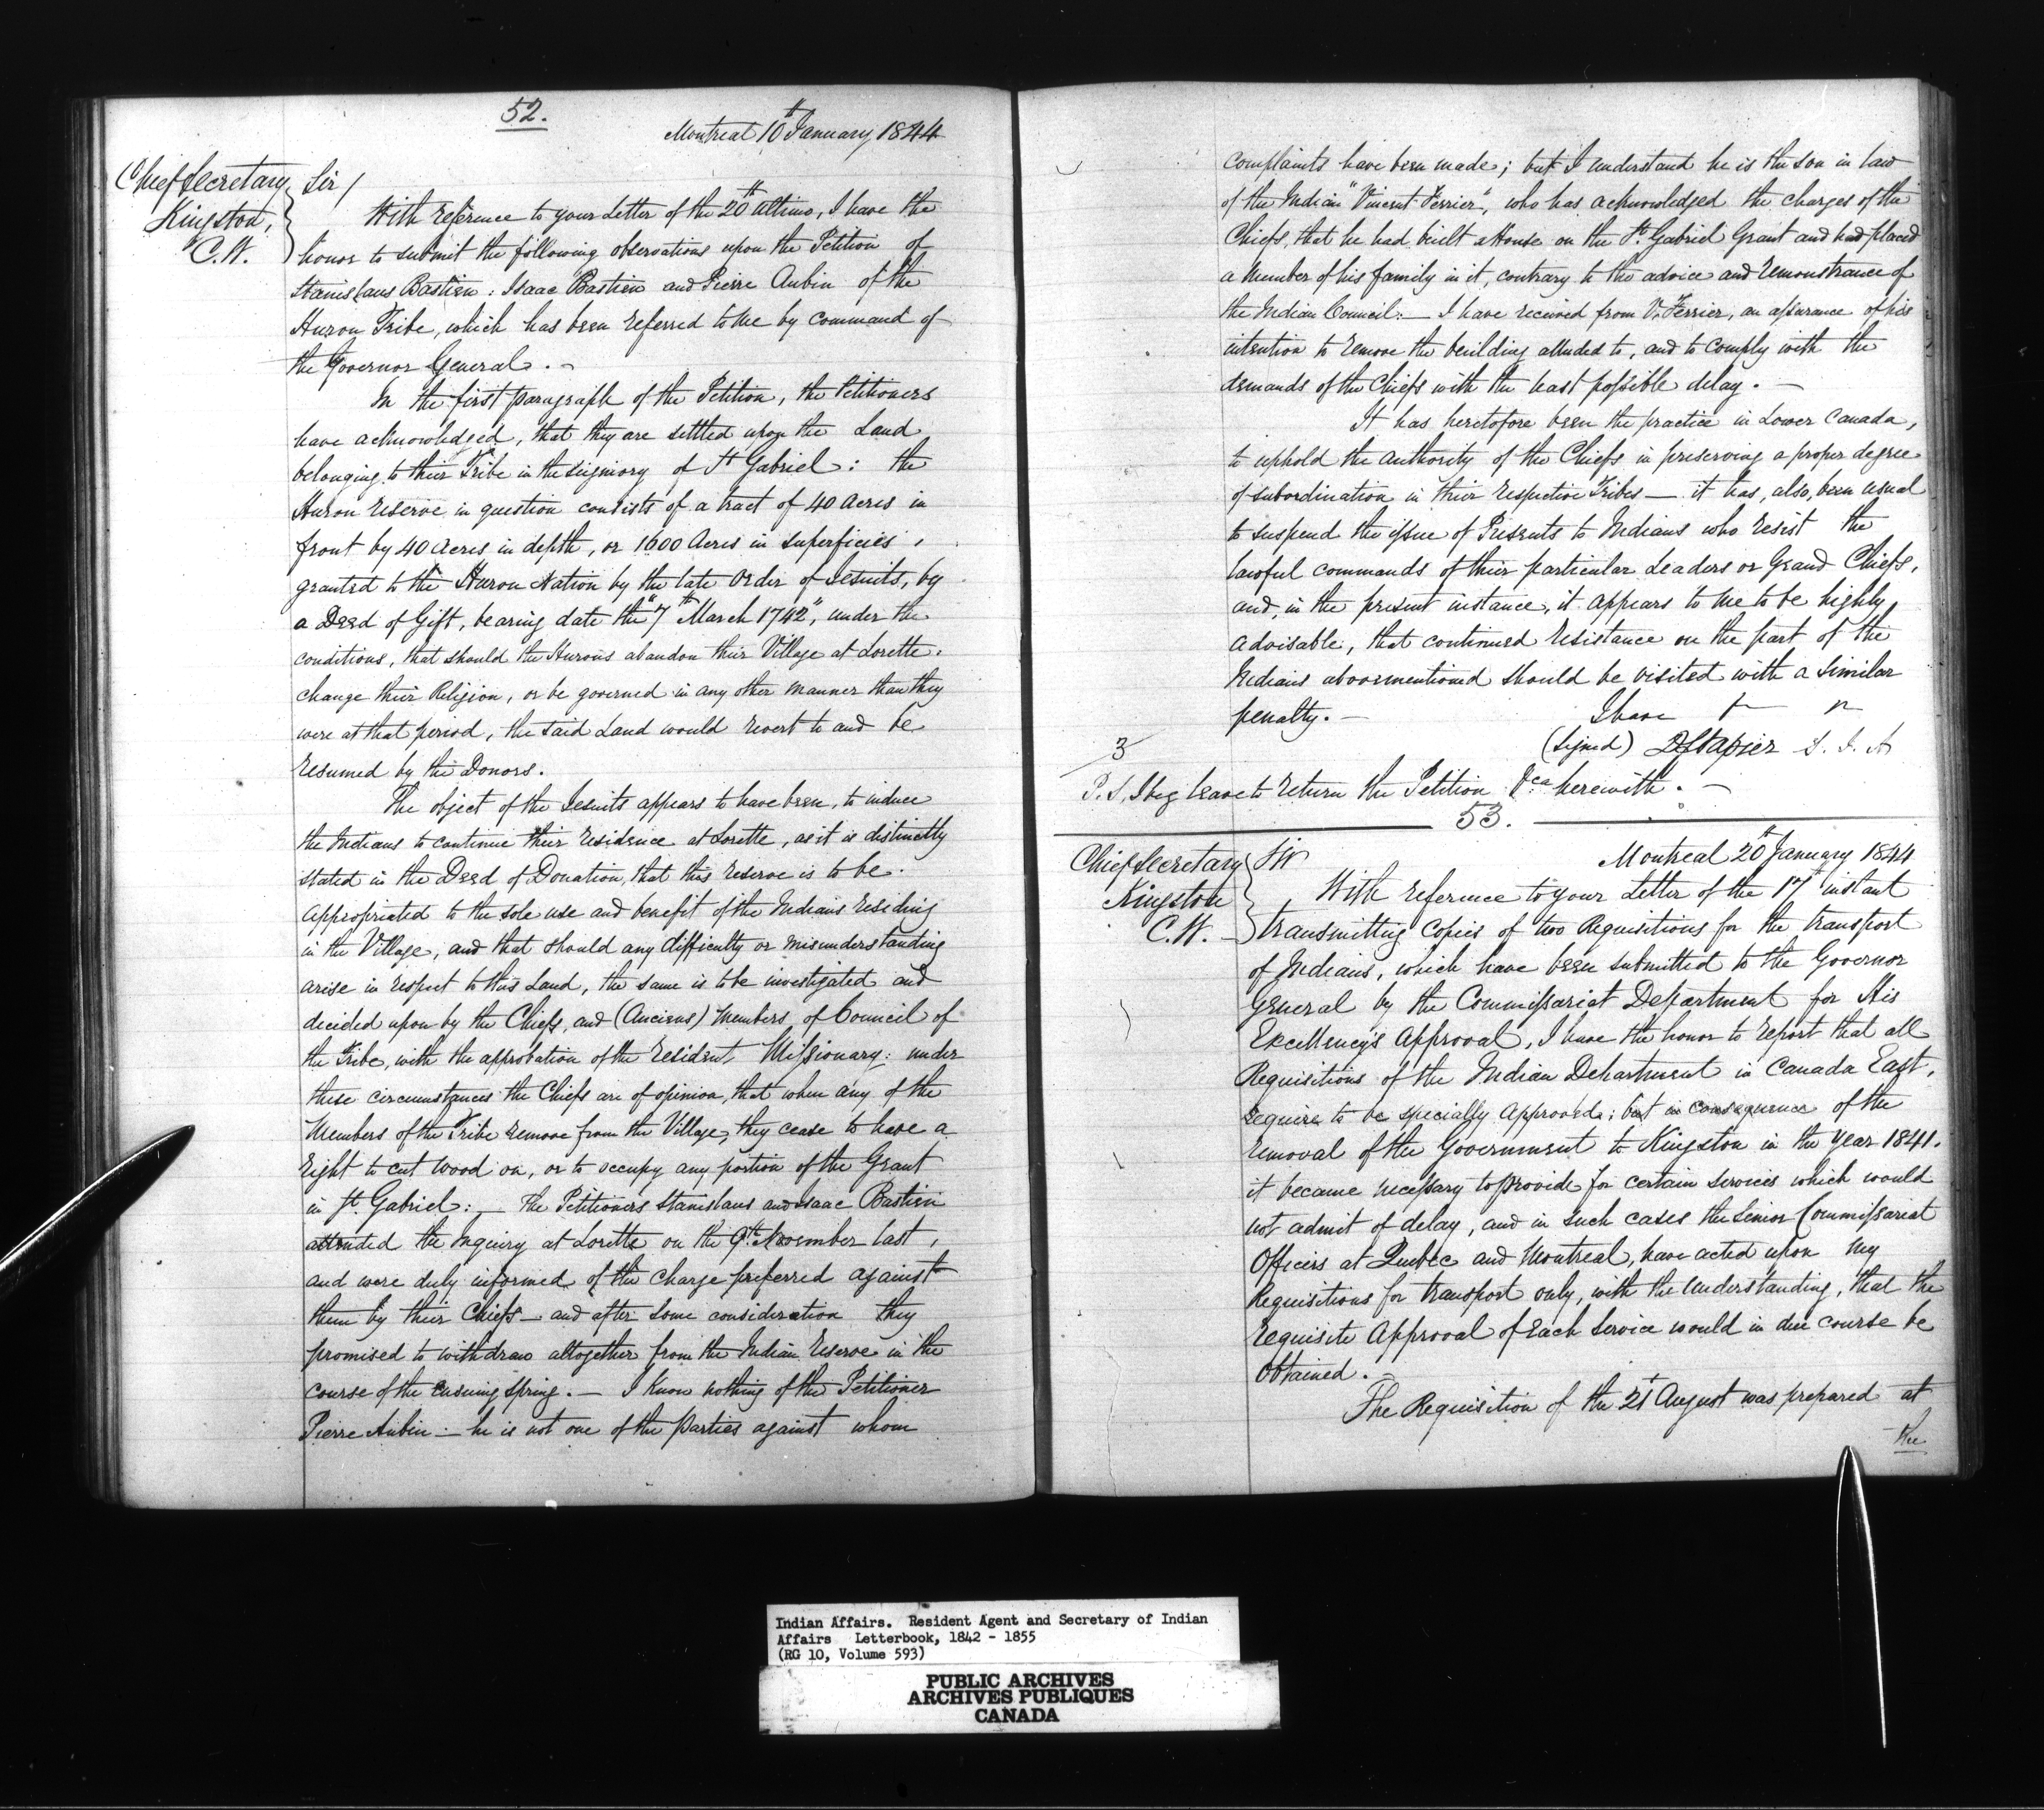 52.
Montreal 10th January 1844
Chief Secretary
Kingston,
C.W.
Sir/
With reference to your Letter of the 20th Ultimo, I have the
honor to submit the following observations upon the Petition of
Stanislaus Bastien: Isaac Bastien and Pierre Aubin of the
Huron Tribe, which has been referred to me by command of
the Governor General. -
In the first paragraph of the Petition, the Petitioners
have acknowledged, that they are settled upon the Land
belonging to their Tribe in the Seigniory of St Gabriel: the
Huron Reserve in question consists of a tract of 40 Acres in
front by 40 Acres in depth, or 1600 Acres in superficies,
granted to the Huron Nation by the late Order of Jesuits, by
a Deed of Gift, bearing date the "7th March 1742", under the
conditions, that should the Hurons abandon their Village at Lorette.
change their Religion, or be governed in any other manner than they
were at that period, the said Land would revert to and be
resumed by the Donors.
The object of the Jesuits appears to have been, to induce
the Indians to continue their residence at Lorette, as it is distinctly
stated in the Deed of Donation, that this reserve is to be.
appropriated to the sole use and benefit of the Indians residing
in the Village, and that should any difficulty or misunderstanding
arise in respect to this Land, the same is to be investigated and
decided upon by the Chiefs, and (Anciens) Members of Council of
the Tribe, with the approbation of the resident Missionary: under
these circumstances the Chiefs are of opinion, that when any of the
Members of the Tribe remove from the Village, they cease to have a
right to cut wood on, or to occupy any portion of the Grant
in St. Gabriel: - The Petitioners Stanislaus and Isaac Bastien
attended the Inquiry at Lorette on the 9th November last,
and were duly informed of the charge preferred against
them by their Chiefs - and after some consideration they
promised to withdraw altogether from the Indian Reserve in the
course of the ensuing Spring. - I know nothing of the Petitioner
Pierre Aubin - he is not one of the parties against whom
complaints have been made; but I understand he is the son in law
of the Indian "Vincent Ferrier", who has acknowledged the charges of the
Chiefs, that he had built a House on the St. Gabriel Grant and had placed
a member of his family in it, contrary to the advice and remonstrance of
the Indian Council: - I have received from V. Ferrier, an assurance of his
intention to remove the building alluded to, and to comply with the
demands of the Chiefs with the least possible delay. -
It has heretofore been the practice in Lower Canada,
to uphold the authority of the Chiefs in preserving a proper degree
of subordination in their respective Tribes - it has, also, been usual
to suspend the issue of Presents to Indians who resist the
lawful commands of their particular Leaders or Grand Chiefs,
and, in the present instance, it appears to me to be highly
advisable, that continued resistance on the part of the
Indians abovementioned should be visited with a similar
penalty. -
I have
(signed) D C Napier S. I. A
3
P.S. I beg leave to return the Petition &ca herewith. -
53.
Montreal 20th January 1844
Chief Secretary
Kingston
C.W.
Sir
With reference to your Letter of the 17th instant
transmitting Copies of two Requisitions for the transport
of Indians, which have been submitted to the Governor
General by the Commissariat Department for His
Excellency's Approval, I have the honor to report that all
Requisitions of the Indian Department in Canada East,
require to be specially Approved; but in consequence of the
removal of the Government to Kingston in the year 1841.
it became necessary to provide for certain services which would
not admit of delay, and in such cases the Senior Commissariat
Officers at Quebec and Montreal, have acted upon my
Requisitions for transport only, with the understanding, that the
requisite Approval of each Service would in due course be
obtained. -
The Requisition of the 21t August was prepared at
the
Indian Affairs. Resident Agent and Secretary of Indian
Affairs Letterbook, 1842 - 1855
(RG 10, Volume 593)
PUBLIC ARCHIVES
ARCHIVES PUBLIQUES
CANADA